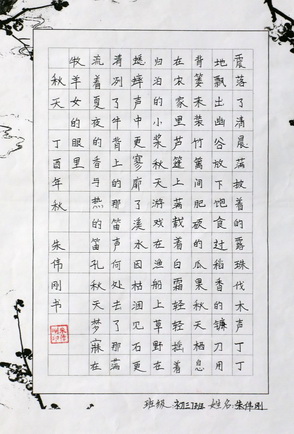 震落了清晨满披着的露珠伐木声丁丁
地飘出幽谷放下饱食过稻香的镰刀用
背篓来装竹篱间肥硕的瓜果秋天栖息
在农家里芦篷上满载着白霜轻轻摇着
归泊的小桨秋天游戏在渔船上草野在
蟋蟀声中更寥廓了溪水因枯涸见石更
清冽了牛背上的那笛声何处去了那满
流着夏夜的香与热的笛孔秋天梦寐在
牧羊女的眼里
秋天 丁酉年秋 朱伟刚书
班级 初三13班 姓名 朱伟刚